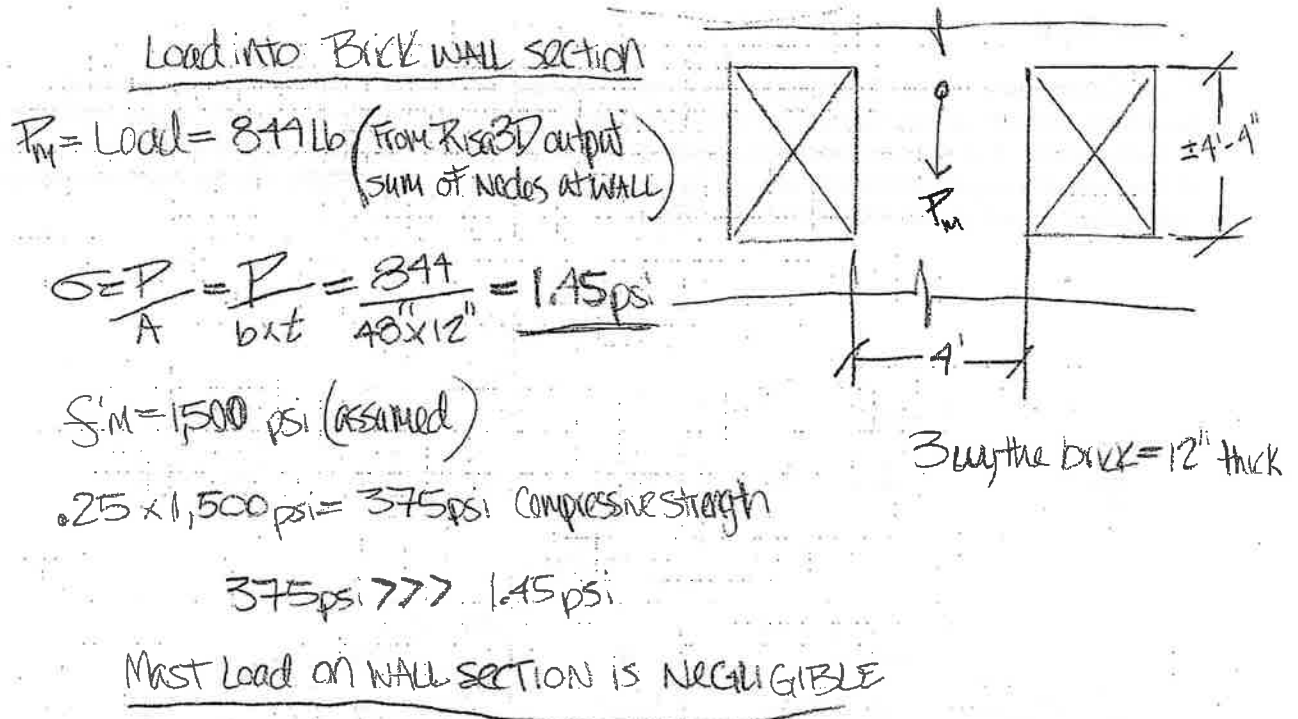 Load into Brick WALL section
Pm = Load = 844 lb (From Risa3D output
sum of Nodes at WALL)
σ = P/A = P/b×t = 844/48"×12" = 1.45psi
f'm = 1,500 psi (assumed)
.25 × 1,500 psi = 375psi Compressive strength
375psi >>> 1.45psi
Mast Load on WALL SECTION is NEGLIGIBLE
Pm
±4'-4"
4'
3 wythe brick = 12" thick